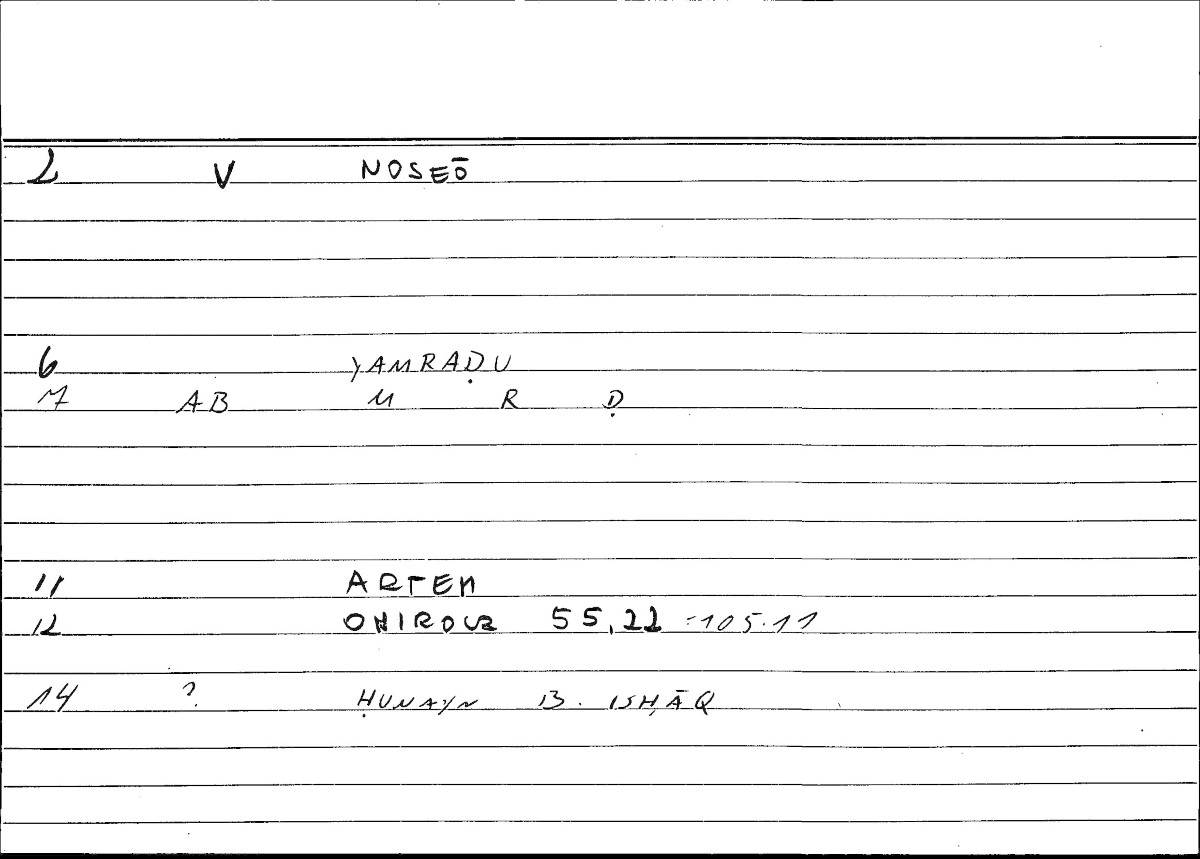 2 V NOSEŌ
6 YAMRAḌU
7 AB M R Ḍ
11 ARTEM
12 ONIROCR 55,22 =105.11
14 ? ḤUNAYN B. ISḤĀQ